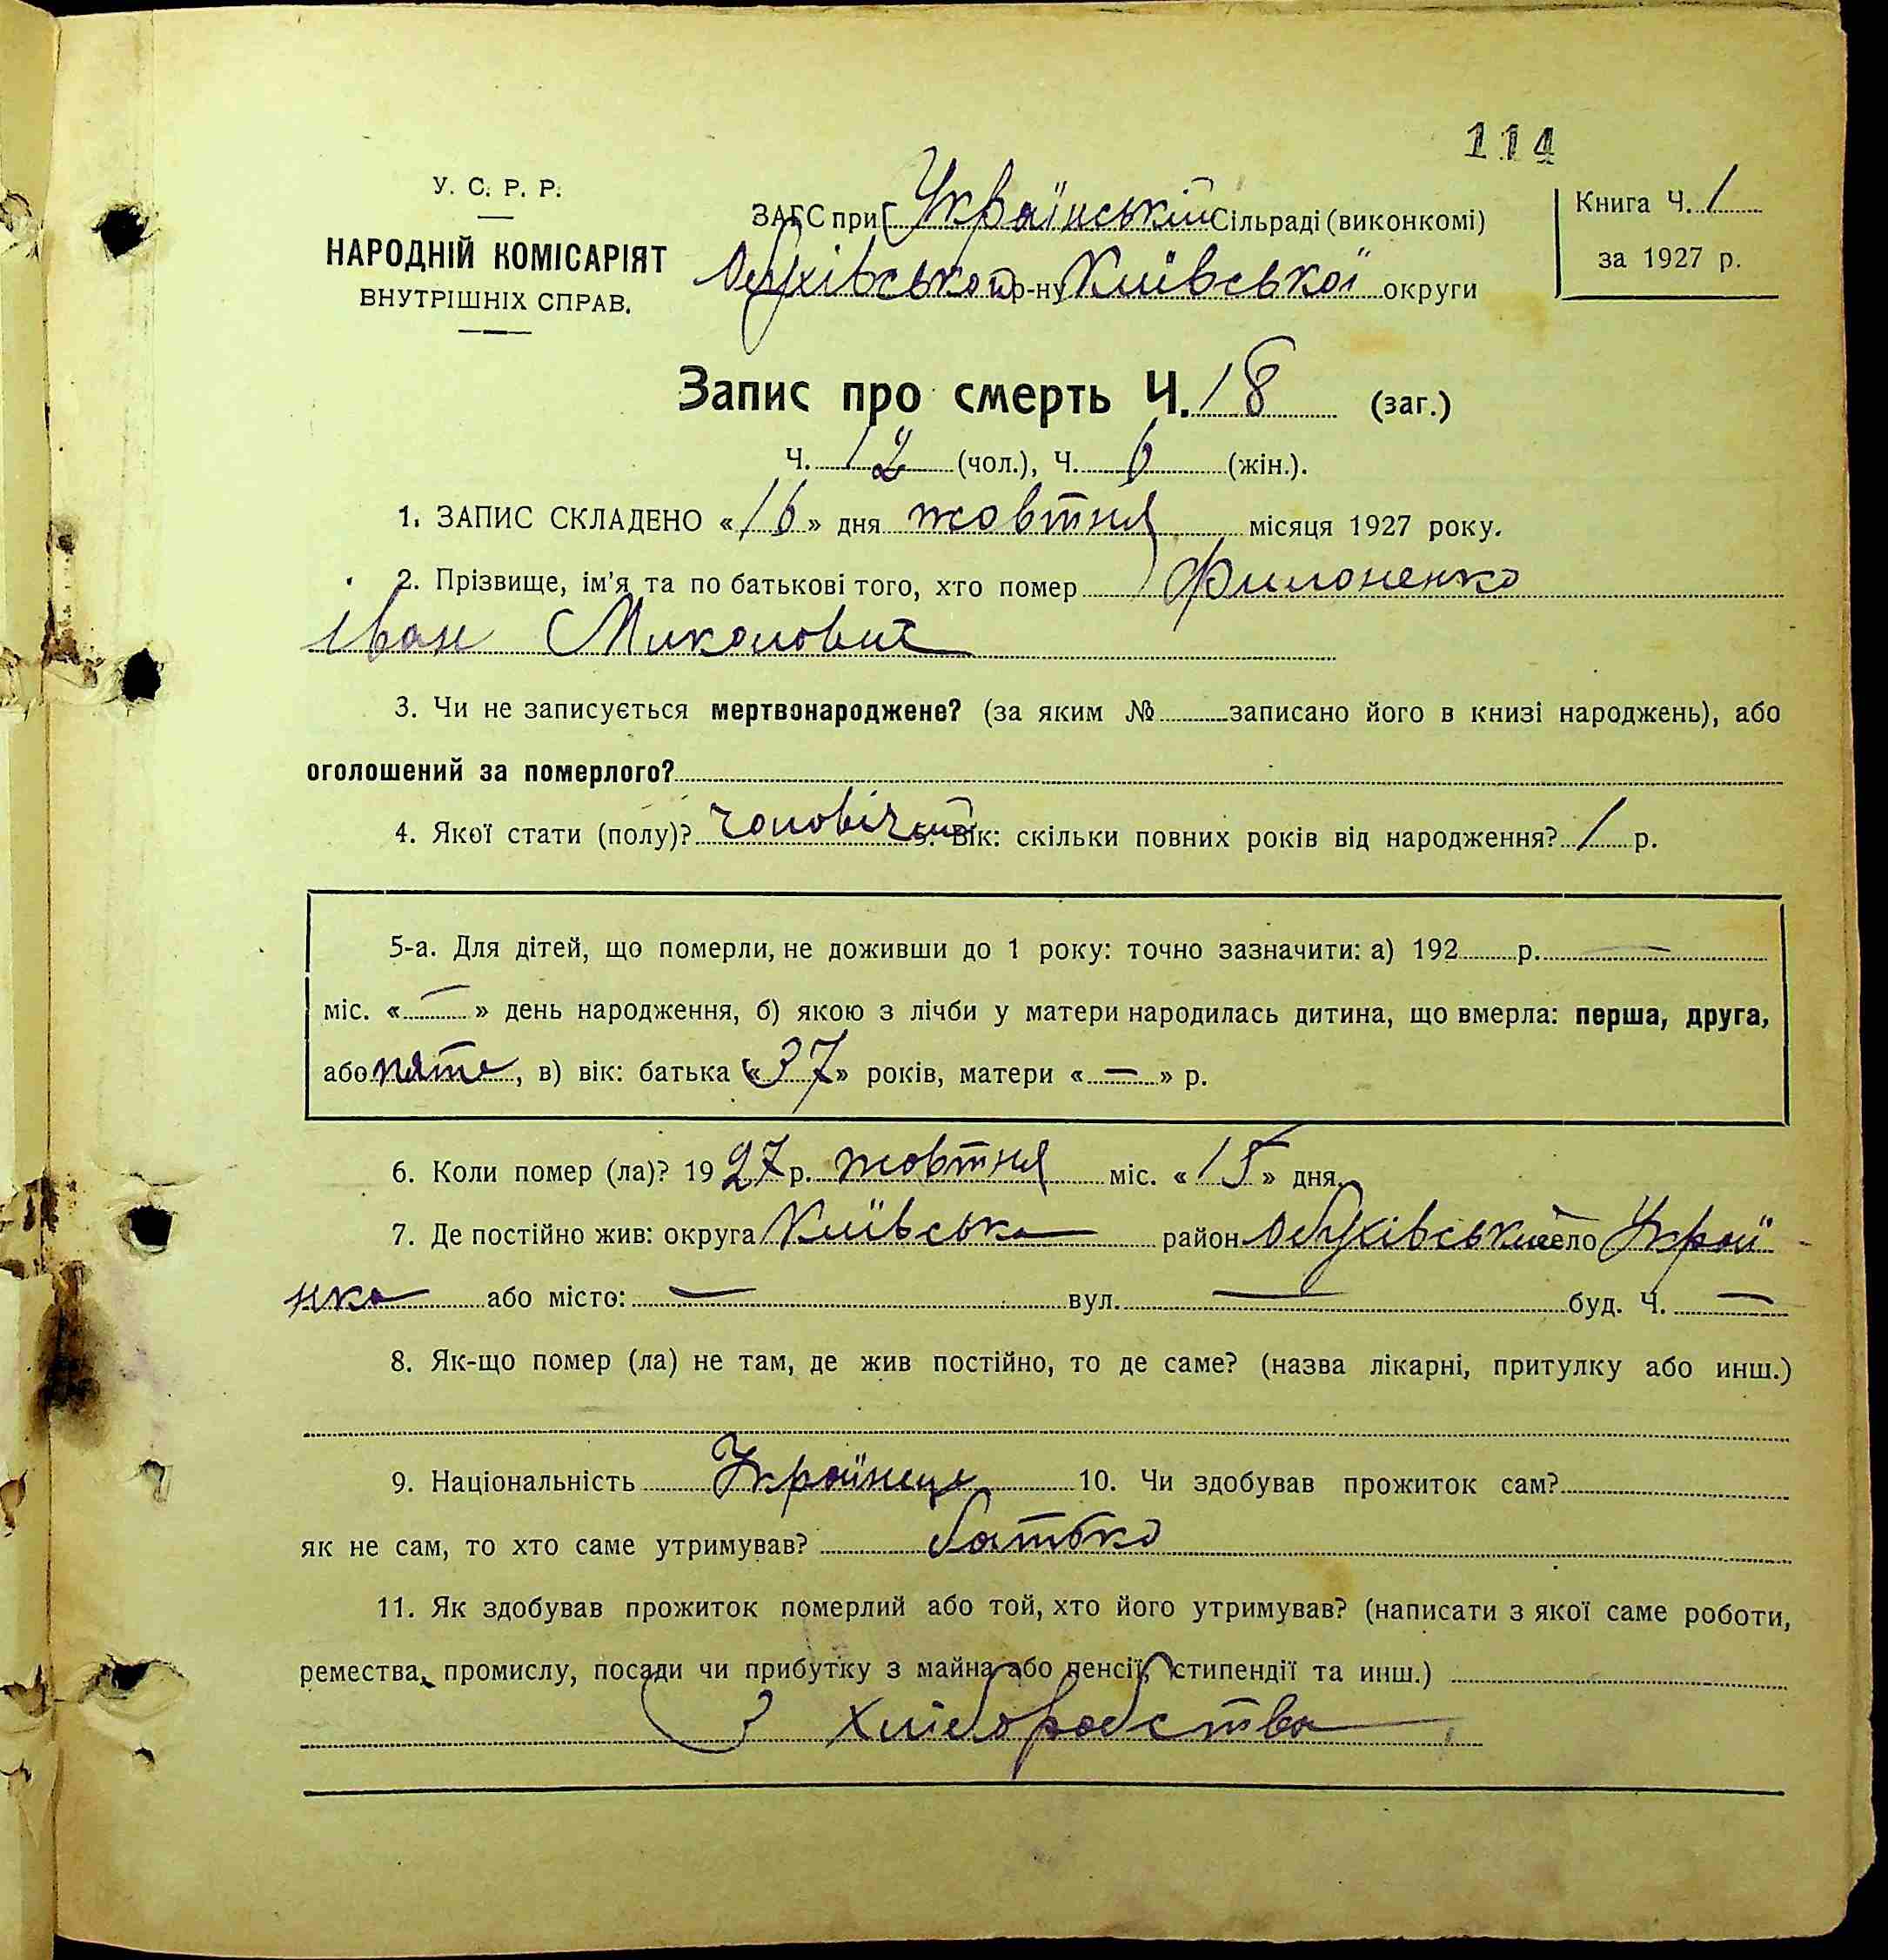 114
У. С. Р. Р.
НАРОДНІЙ КОМІСАРІЯТ
ВНУТРІШНІХ СПРАВ.
ЗАГС при Українській Сільраді (виконкомі)
Обухівського р-ну Київської округи
Книга Ч. 1
за 1927 р.
Запис про смерть Ч. 18 (заг.)
Ч. 12 (чол.), Ч. 6 (жін.).
1. ЗАПИС СКЛАДЕНО «16» дня жовтня місяця 1927 року.
2. Прізвище, ім'я та по батькові того, хто помер Филоненко
Іван Миколович
3. Чи не записується мертвонароджене? (за яким № записано його в книзі народжень), або
оголошений за померлого?
4. Якої стати (полу)? чоловічий 5. Вік: скільки повних років від народження? 1 р.
5-а. Для дітей, що померли, не доживши до 1 року: точно зазначити: а) 192 р. —
міс. «—» день народження, б) якою з лічби у матери народилась дитина, що вмерла: перша, друга,
або пяте, в) вік: батька «37» років, матери «—» р.
6. Коли помер (ла)? 1927 р. жовтня міс. «15» дня.
7. Де постійно жив: округа Київська район Обухівський село Украї
нка або місто: — вул. — буд. Ч. —
8. Як-що помер (ла) не там, де жив постійно, то де саме? (назва лікарні, притулку або инш.)
9. Національність Українець 10. Чи здобував прожиток сам?
як не сам, то хто саме утримував? батько
11. Як здобував прожиток померлий або той, хто його утримував? (написати з якої саме роботи,
ремества, промислу, посади чи прибутку з майна або пенсії, стипендії та инш.)
З хліборобства